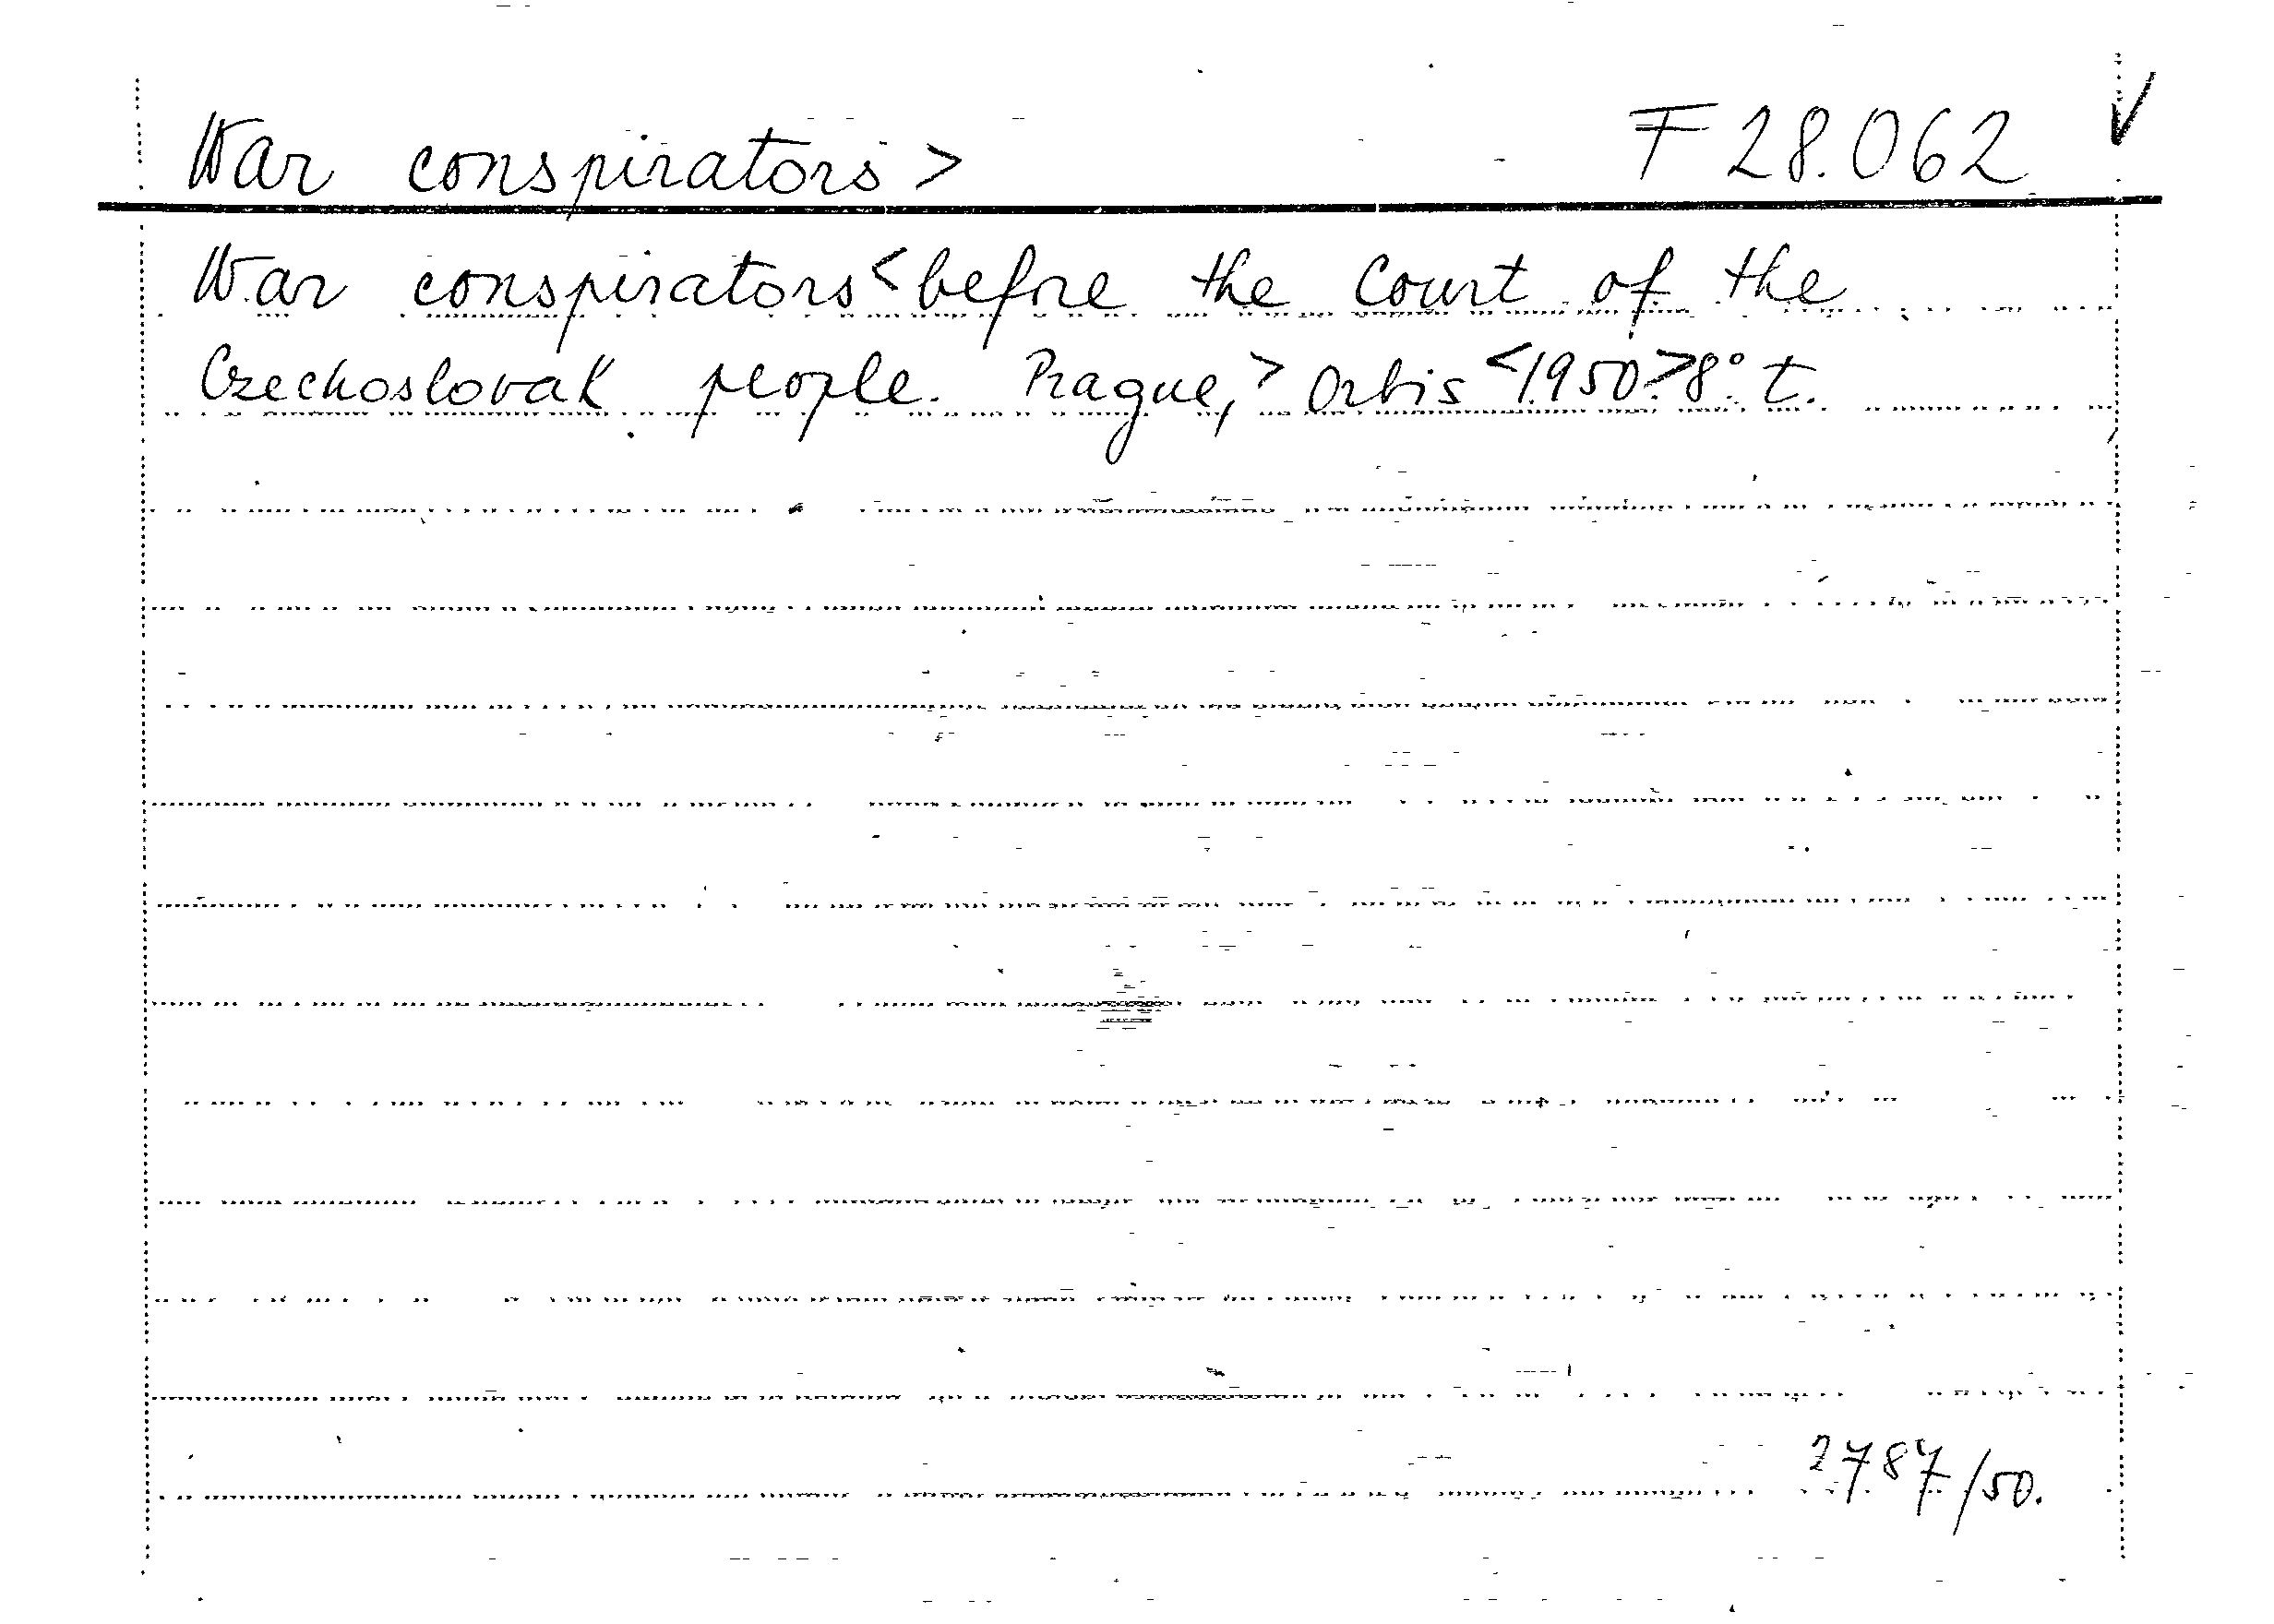 War conspirators > F 28.062 ✓
War conspirators < before the Court of the
Czechoslovak people. Prague, > Orbis < 1950. > 8° t.
2787/50.